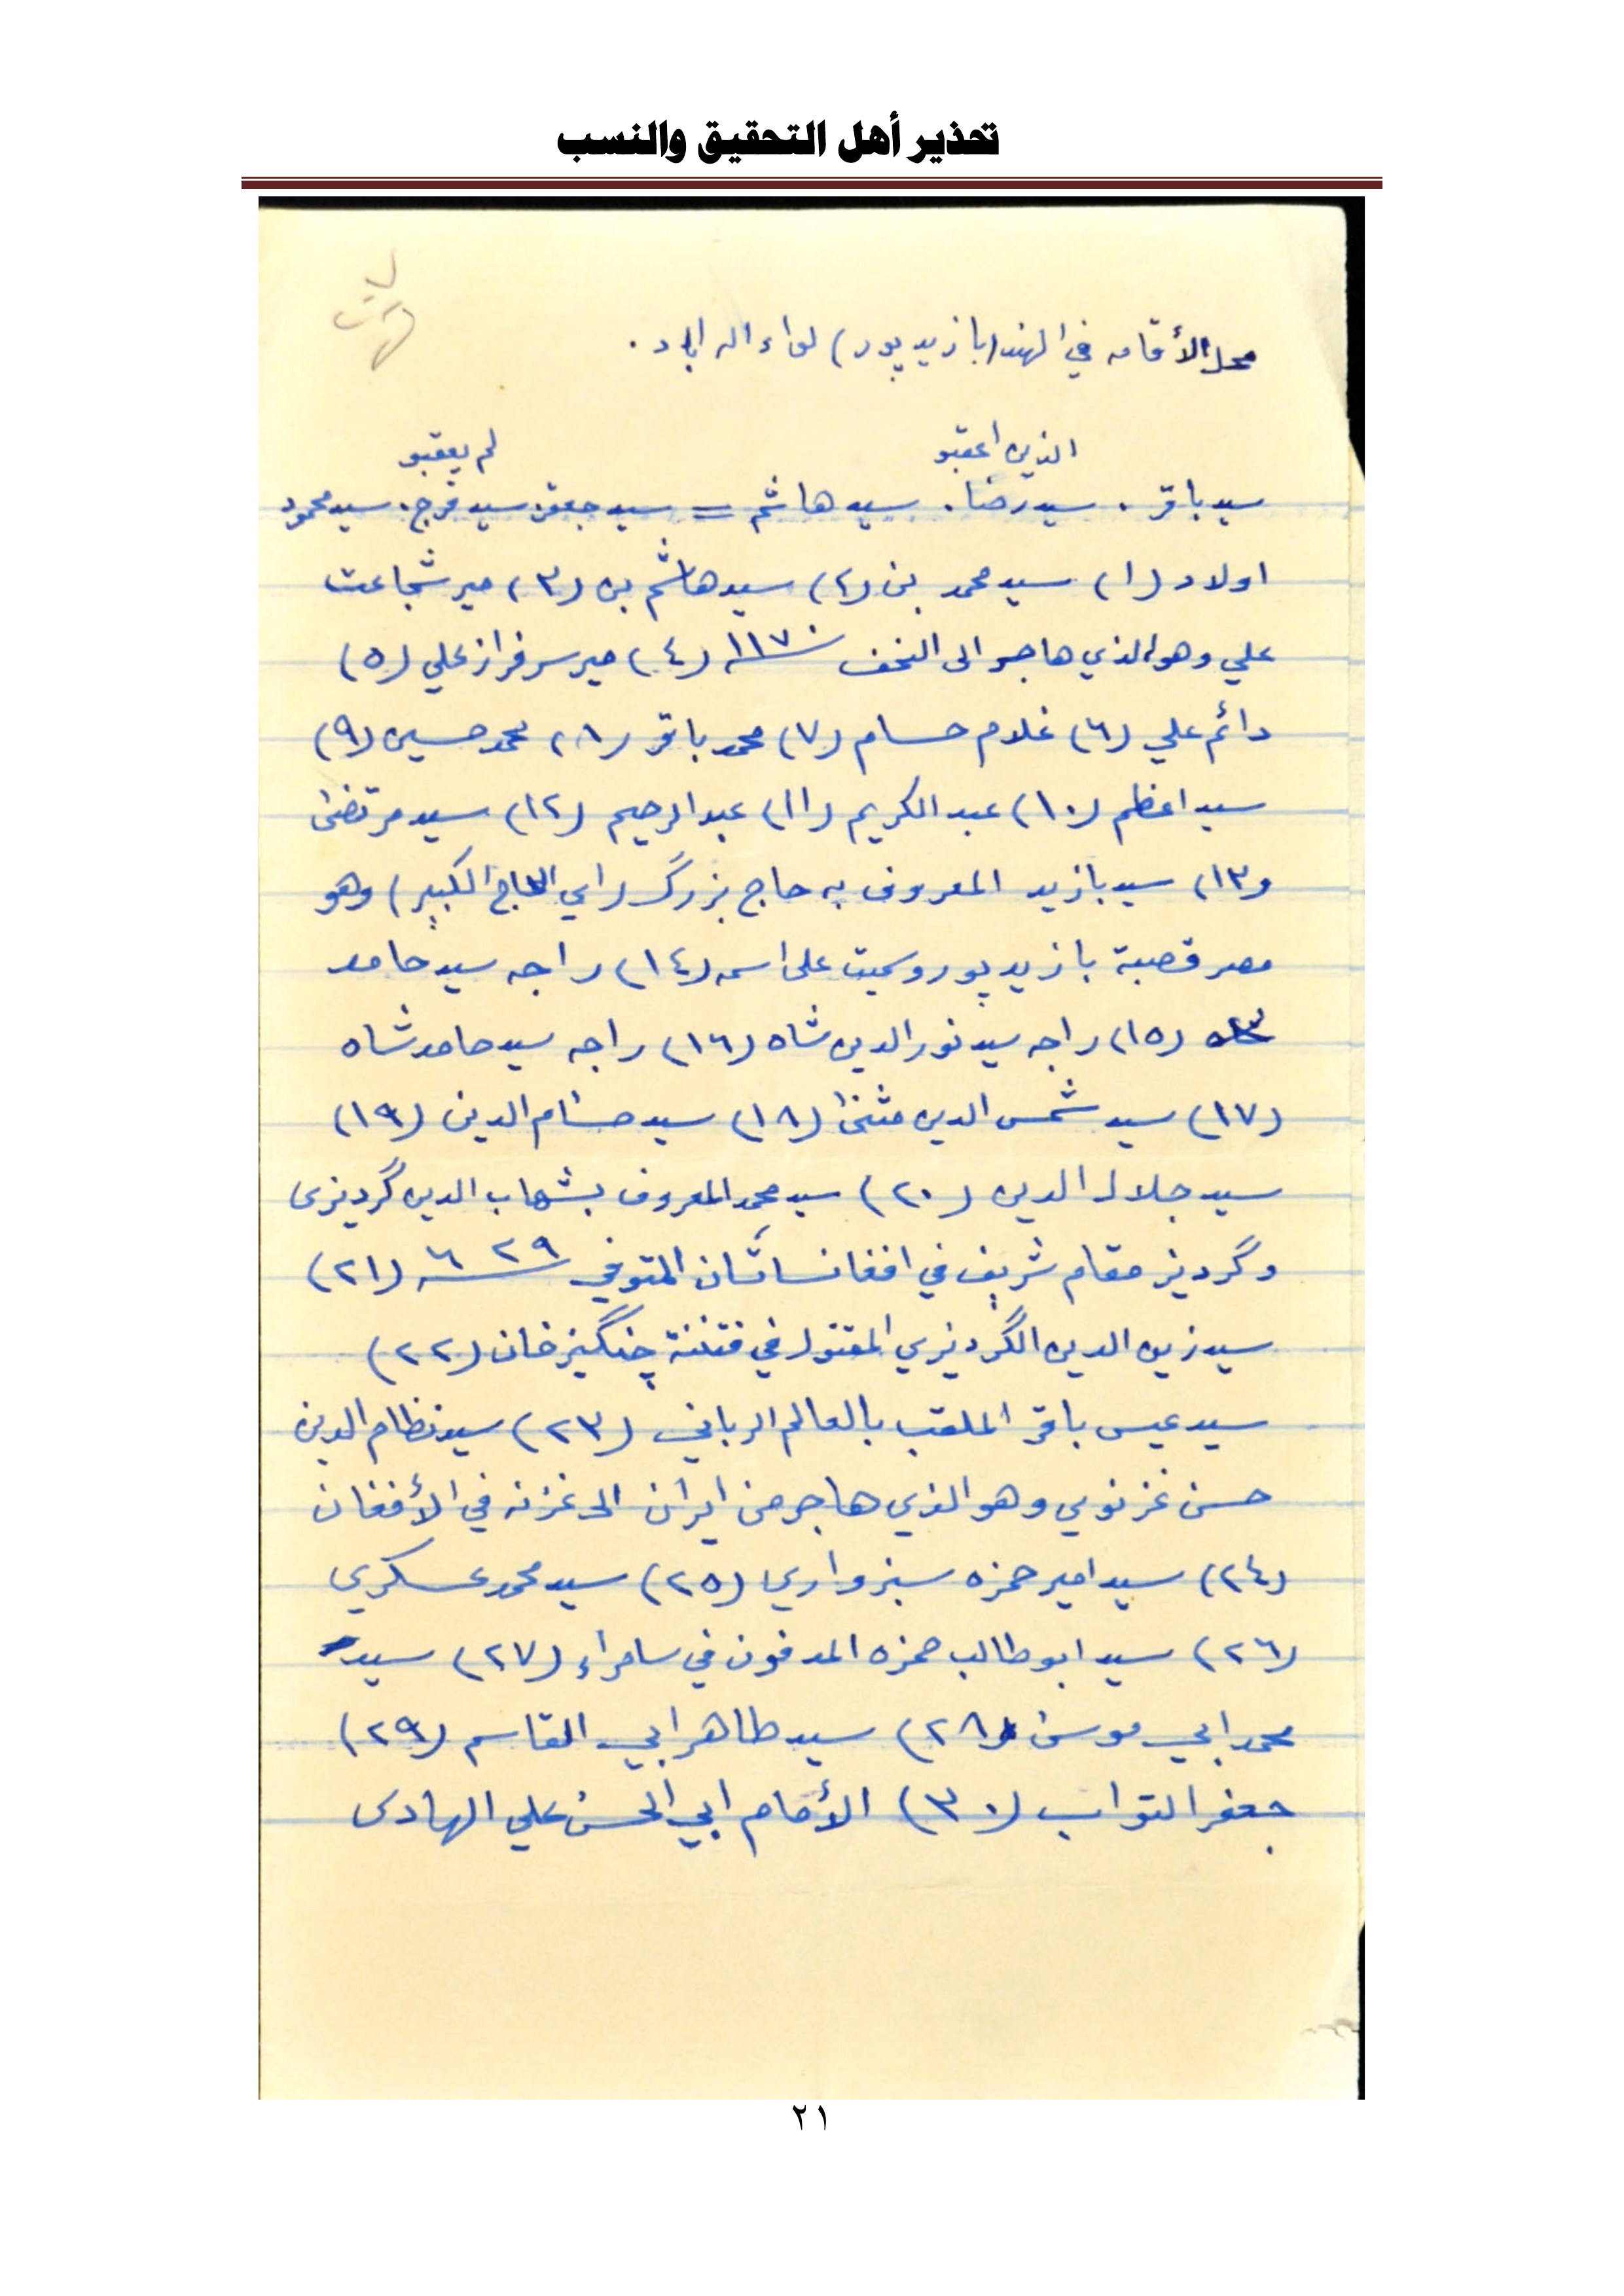 تحذير أهل التحقيق والنسب
محل الأقامه في الهند (بازيد پور) لواء اله اباد .
الذين اعقبو
لم يعقبو
سيد باقر . سيد رضا . سيد هاشم = سيد جعفر. سيد فرج . سيد محمود
اولاد (١) سيد محمد بن (٢) سيد هاشم بن (٣) مير شجاعت
علي وهو الذي هاجر الى النجف سنة ١١٧٠ (٤) مير سرفراز علي (٥)
دائم علي (٦) غلام حسام (٧) محمد باقر (٨) محمد حسين (٩)
سيد اعظم (١٠) عبد الكريم (١١) عبد الرحيم (١٢) سيد مرتضى
و١٣) سيد بازيد المعروف به حاج بزرگ (اي الحاج الكبير) وهو
مصر قصبة بازيد پور وسميت على اسمه (١٤) راجه سيد حامد
(١٥) راجه سيد نور الدين شاه (١٦) راجه سيد حامد شاه
(١٧) سيد شمس الدين مثنى (١٨) سيد حسام الدين (١٩)
سيد جلال الدين (٢٠) سيد محمد المعروف بشهاب الدين گرديزى
وگرديز مقام شريف في افغانساتان المتوفي سنة ٦٢٩ (٢١)
سيد زين الدين الگرديزي المقتول في فتننة چنگيز خان (٢٢)
سيد عيس باقر الملقب بالعالم الرباني (٢٣) سيد نظام الدين
حسن غزنوي وهو الذي هاجر من ايران الى غزنه في الأفغان
(٢٤) سيد امير حمزه سبزواري (٢٥) سيد محمد عسكري
(٢٦) سيد ابو طالب حمزه المدفون في سامراء (٢٧) سيد
محمد ابي موسى (٢٨) سيد طاهر ابي القاسم (٢٩)
جعفر التواب (٣٠) الأمام ابي الحسن علي الهادى
٢١